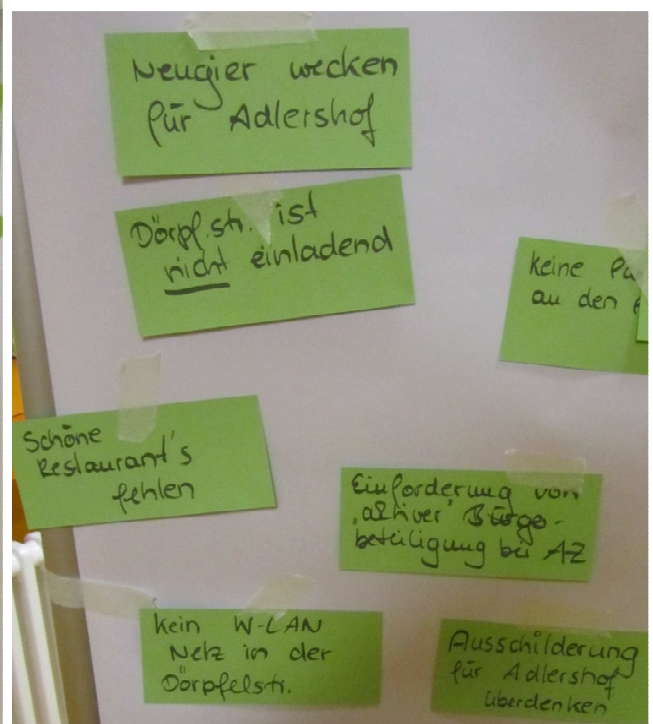 Neugier wecken
für Adlershof
Dörpf.str. ist
nicht einladend
keine
au den
Schöne
Restaurant's
fehlen
Einforderung von
„aktiver" Bürge-
beteiligung bei AZ
Kein W-LAN
Netz in der
Dörpfelstr.
Ausschilderung
für Adlershof
überdenken